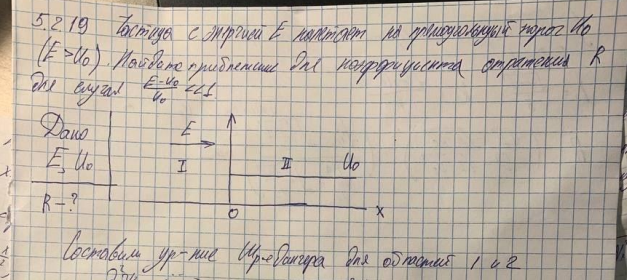 5.2.19 Частица с энергией E налетает на прямоугольный порог U0
(E>U0). Найдите приближение для коэффициента отражения R
для случая E-U0/U0 <<1.
Дано
E, U0
R-?
E
I
II
U0
0
x
Составим ур-ние Шредингера для областей 1 и 2